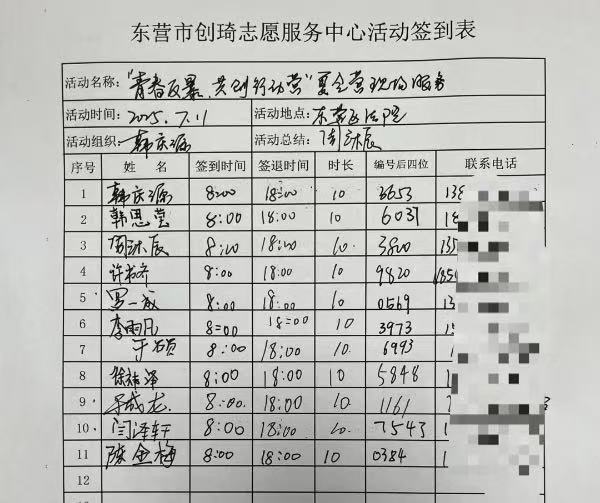 东营市创琦志愿服务中心活动签到表
活动名称：“青春反暴，共创行动营”夏令营现场服务
活动时间：2025.7.11 活动地点：东营区法院
活动组织：韩庆源 活动总结：周沐辰
序号 姓 名 签到时间 签退时间 时长 编号后四位 联系电话
1 韩庆源 8:00 18:00 10 3653 138
2 韩思莹 8:00 18:00 10 6031 1
3 周沐辰 8:00 18:00 10 3800 135
4 8:00 18:00 10 9820
5 罗一 8:00 18:00 10 0569 13
6 李雨凡 8:00 18:00 10 3973 1
7 于 8:00 18:00 10 6993
8 徐 泽 8:00 18:00 10 5848
9 成龙 8:00 18:00 10 1161
10 闫泽轩 8:00 18:00 10 7543
11 陈金梅 8:00 18:00 10 0384 1
12